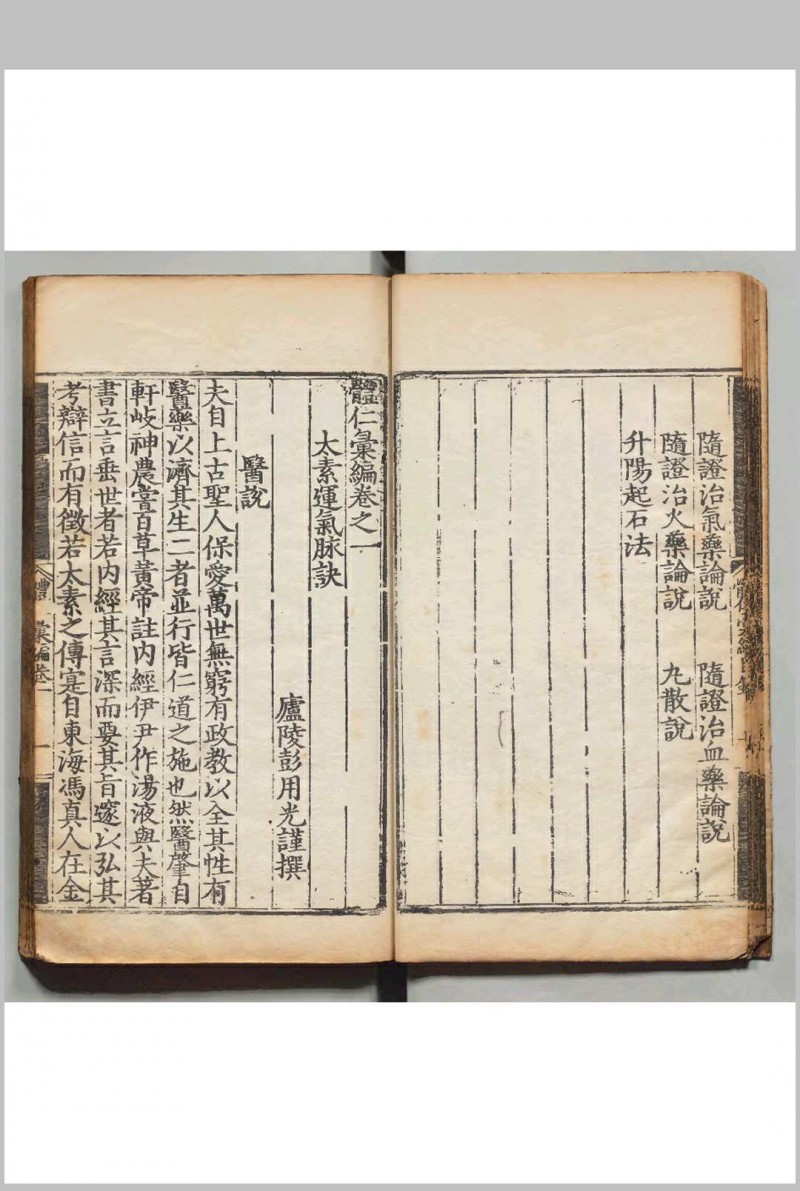 隨證治氣藥論說　隨證治血藥論說
隨證治火藥論說　丸散說
升陽起石法
體仁彙編卷之一
太素運氣脉訣
廬陵彭用光謹撰
醫說
夫自上古聖人保愛萬世無窮有政教以全其性有
醫藥以濟其生二者並行皆仁道之施也然醫肇自
軒岐神農嘗百草黃帝註内經伊尹作湯液與夫著
書立言垂世者若内經其言深而要其旨邃以弘其
考辯信而有徵若太素之傳寔自東海馮真人在金
體　彙編卷一　一